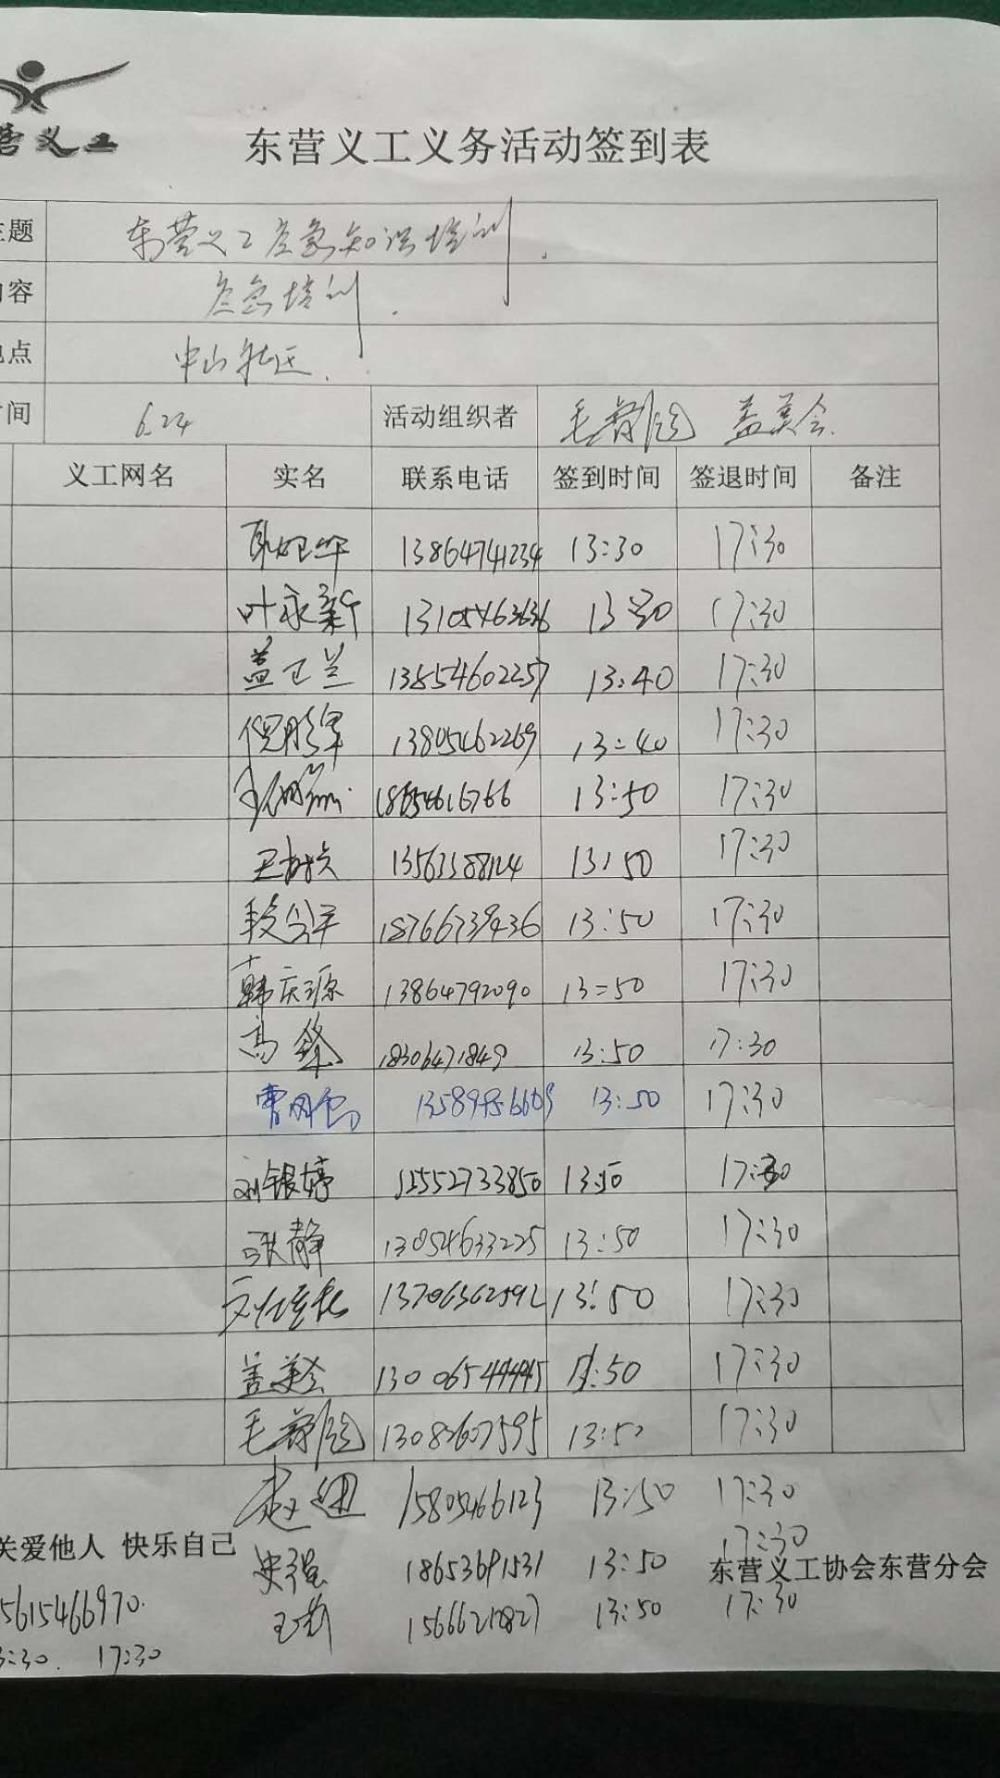 营义工
东营义工义务活动签到表
主题 东营义工应急知识培训.
内容 应急培训.
地点 中山社区.
时间 6.24 活动组织者 毛 盖美会.
义工网名 实名 联系电话 签到时间 签退时间 备注
13864741234 13:30 17:30
叶永新 13105463636 13:30 17:30
盖卫兰 13854602257 13:40 17:30
倪彤军 13805462269 13:40 17:30
18654616766 13:50 17:30
13563388124 13:50 17:30
段公平 18766739436 13:50 17:30
韩庆源 13864792090 13:50 17:30
高锋 18306471849 13:50 17:30
曹 13589956609 13:50 17:30
刘银婷 15552733850 13:50 17:30
张静 13054633225 13:50 17:30
13706362592 13:50 17:30
盖美会 13006544945 13:50 17:30
毛 13082607595 13:50 17:30
赵 15805466123 13:50 17:30
关爱他人 快乐自己 17:30
史强 18653691531 13:50 东营义工协会东营分会
5615466970. 王 13:50 17:30
3:30. 17:30